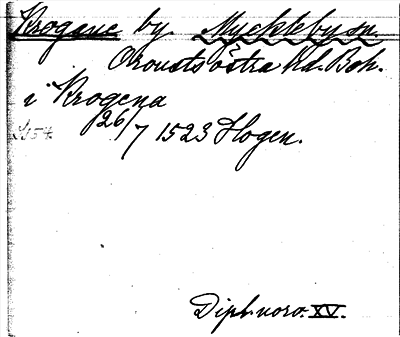 Krogane by Myckleby sn.
Orousts östra hd. Boh.
i Krogena
26/7 1523 Hogen.
Dipl. norv. XV.